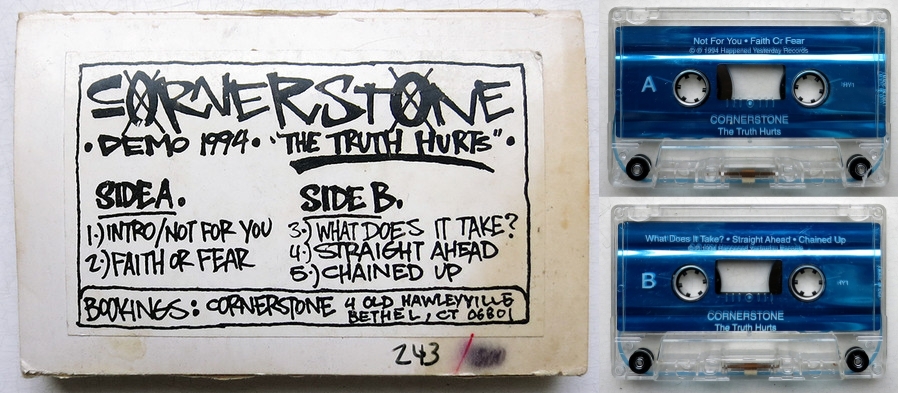 CORNERSTONE
• DEMO 1994 • "THE TRUTH HURTS" •
SIDE A.
1.) INTRO/NOT FOR YOU
2.) FAITH OR FEAR
SIDE B.
3.) WHAT DOES IT TAKE?
4.) STRAIGHT AHEAD
5.) CHAINED UP
BOOKINGS: CORNERSTONE 4 OLD HAWLEYVILLE
BETHEL, CT 06801
243 /
Not For You • Faith Or Fear
© ℗ 1994 Happened Yesterday Records
A
HY1
CORNERSTONE
The Truth Hurts
What Does It Take? • Straight Ahead • Chained Up
© ℗ 1994 Happened Yesterday Records
B
HY1
CORNERSTONE
The Truth Hurts